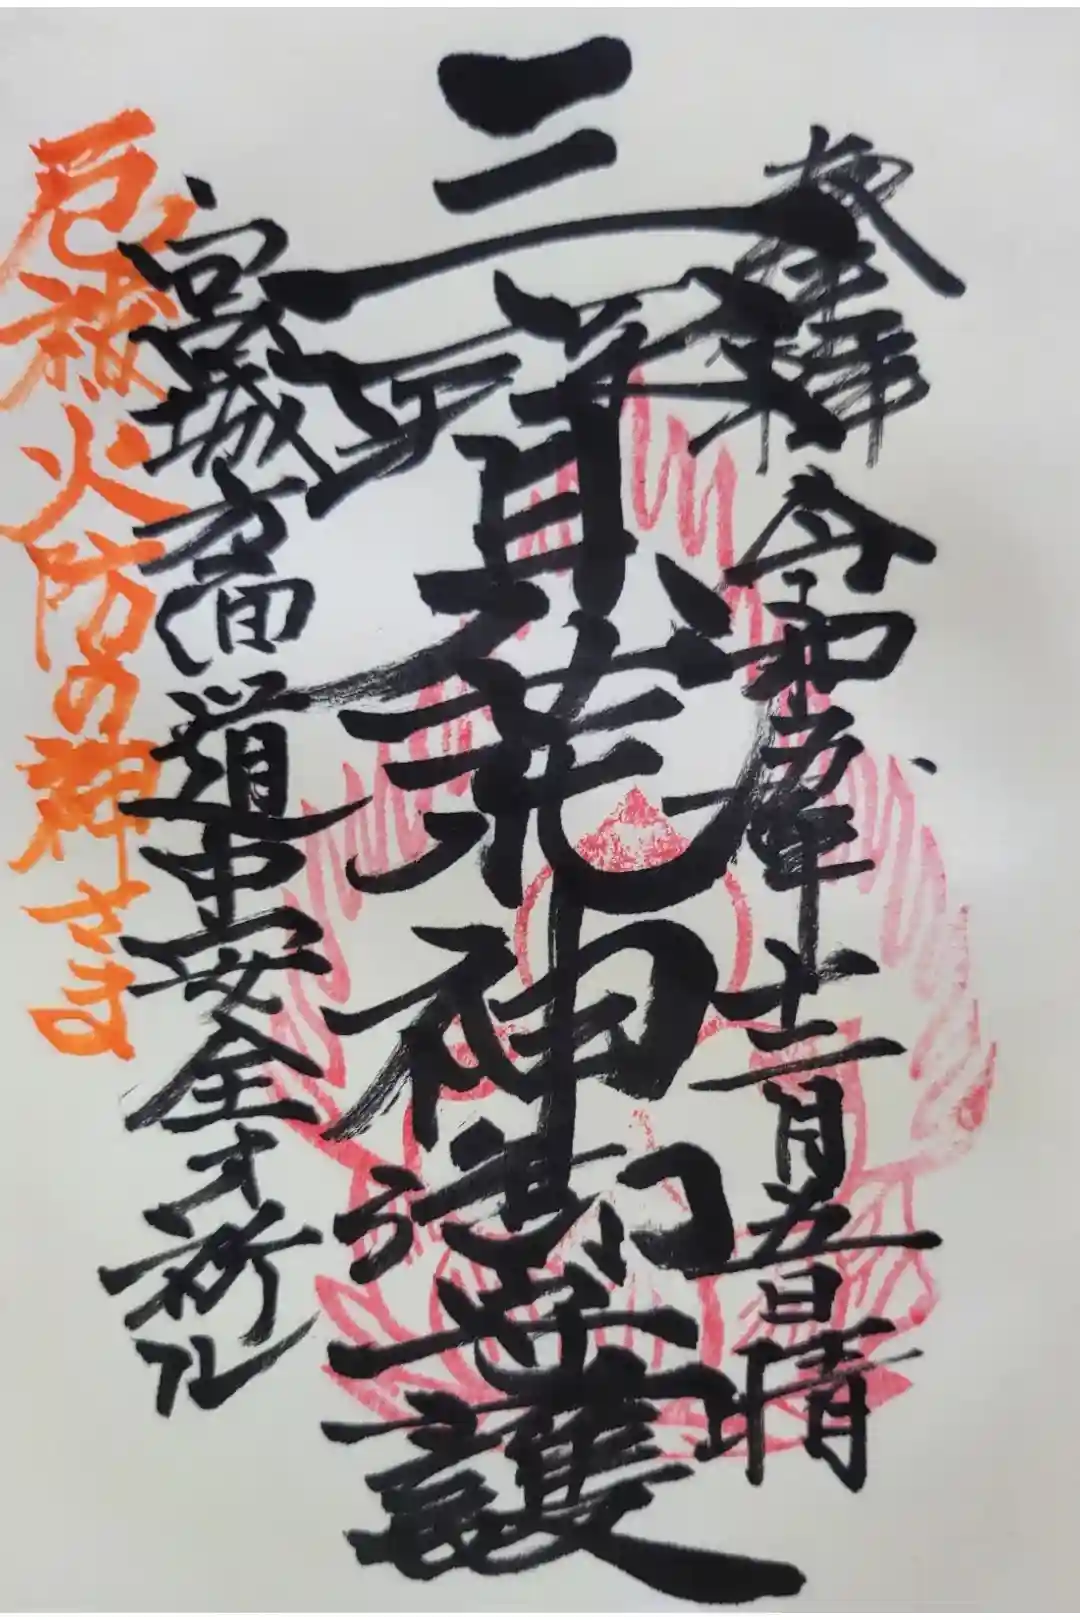 奉拝 令和年十二月五日晴
三寳荒神御守護
宮城方面道中安全ヲ祈ル
厄祓火防の神さま